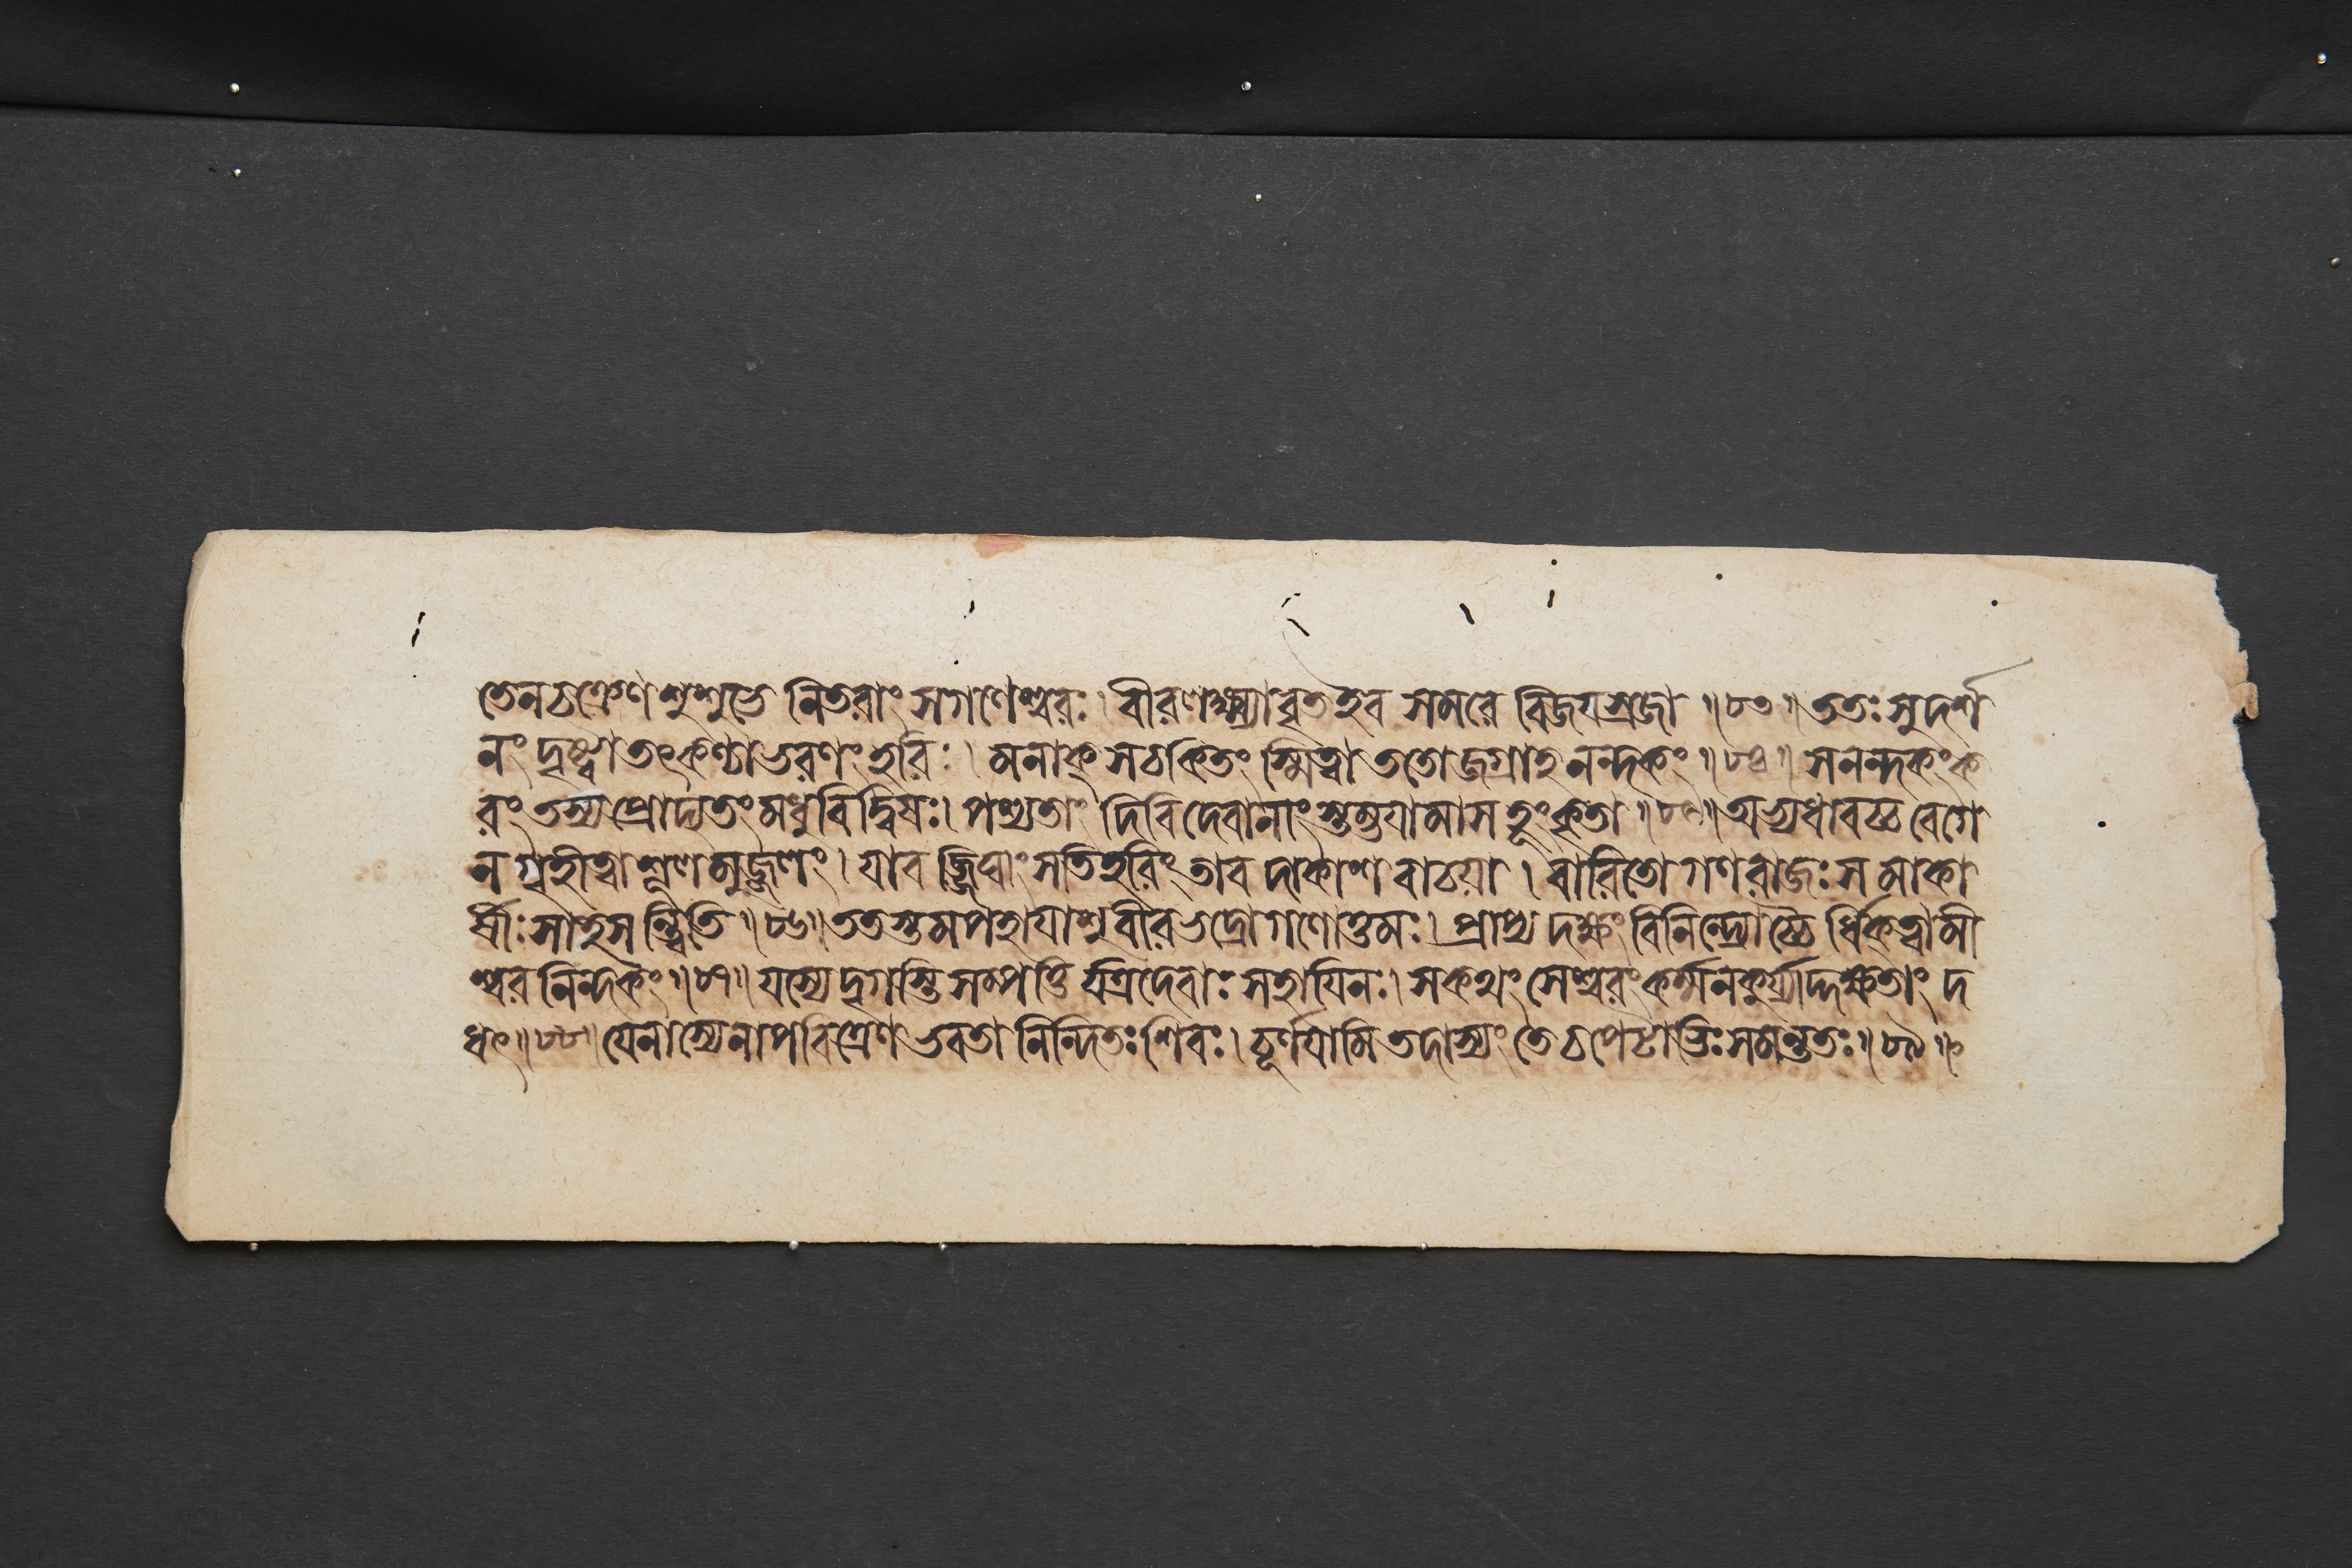 তেন চক্রেণ শুশুভে নিতরাং স গণেশ্বরঃ। বীরলক্ষ্ম্যাবৃত ইব সমরে বিজয়স্রজা ॥৮৩॥ ততঃ সুদর্শ
নং দৃষ্ট্বা তৎকণ্ঠাভরণং হরিঃ। মনাক্ সচকিতং স্মিত্বা ততো জগ্রাহ নন্দকং ॥৮৪॥ সনন্দকং ক
রং তস্য প্রোদ্যতং মধুবিদ্বিষঃ। পশ্যতাং দিবি দেবানাং স্তম্ভয়ামাস হূংকৃতা ॥৮৫॥ অভ্যধাবচ্চ বেগে
ন গৃহীত্বা শূলমুজ্জ্বলং। যাবজ্জিঘাংসতি হরিং তাবদাকাশবাচয়া। বারিতো গণরাজঃ স মাকা
র্ষীঃ সাহসন্ত্বিতি ॥৮৬॥ ততস্তমপহায়াশু বীরভদ্রো গণোত্তমঃ। প্রাপ্য দক্ষং বিনিন্দ্যোচ্চৈর্ধিক্ ত্বামী
শ্বরনিন্দকং ॥৮৭॥ যস্যেদৃগস্তি সম্পত্তি র্যত্র দেবাঃ সহায়িনঃ। স কথং সেশ্বরং কর্ম্ম ন কুর্য্যাদ্দক্ষতাং দ
ধৎ ॥৮৮॥ যেনাস্যেনাপবিত্রেণ ভবতা নিন্দিতঃ শিবঃ। চূর্ণয়ামি তদাস্যং তে চপেটাভিঃ সমন্ততঃ ॥৮৯॥